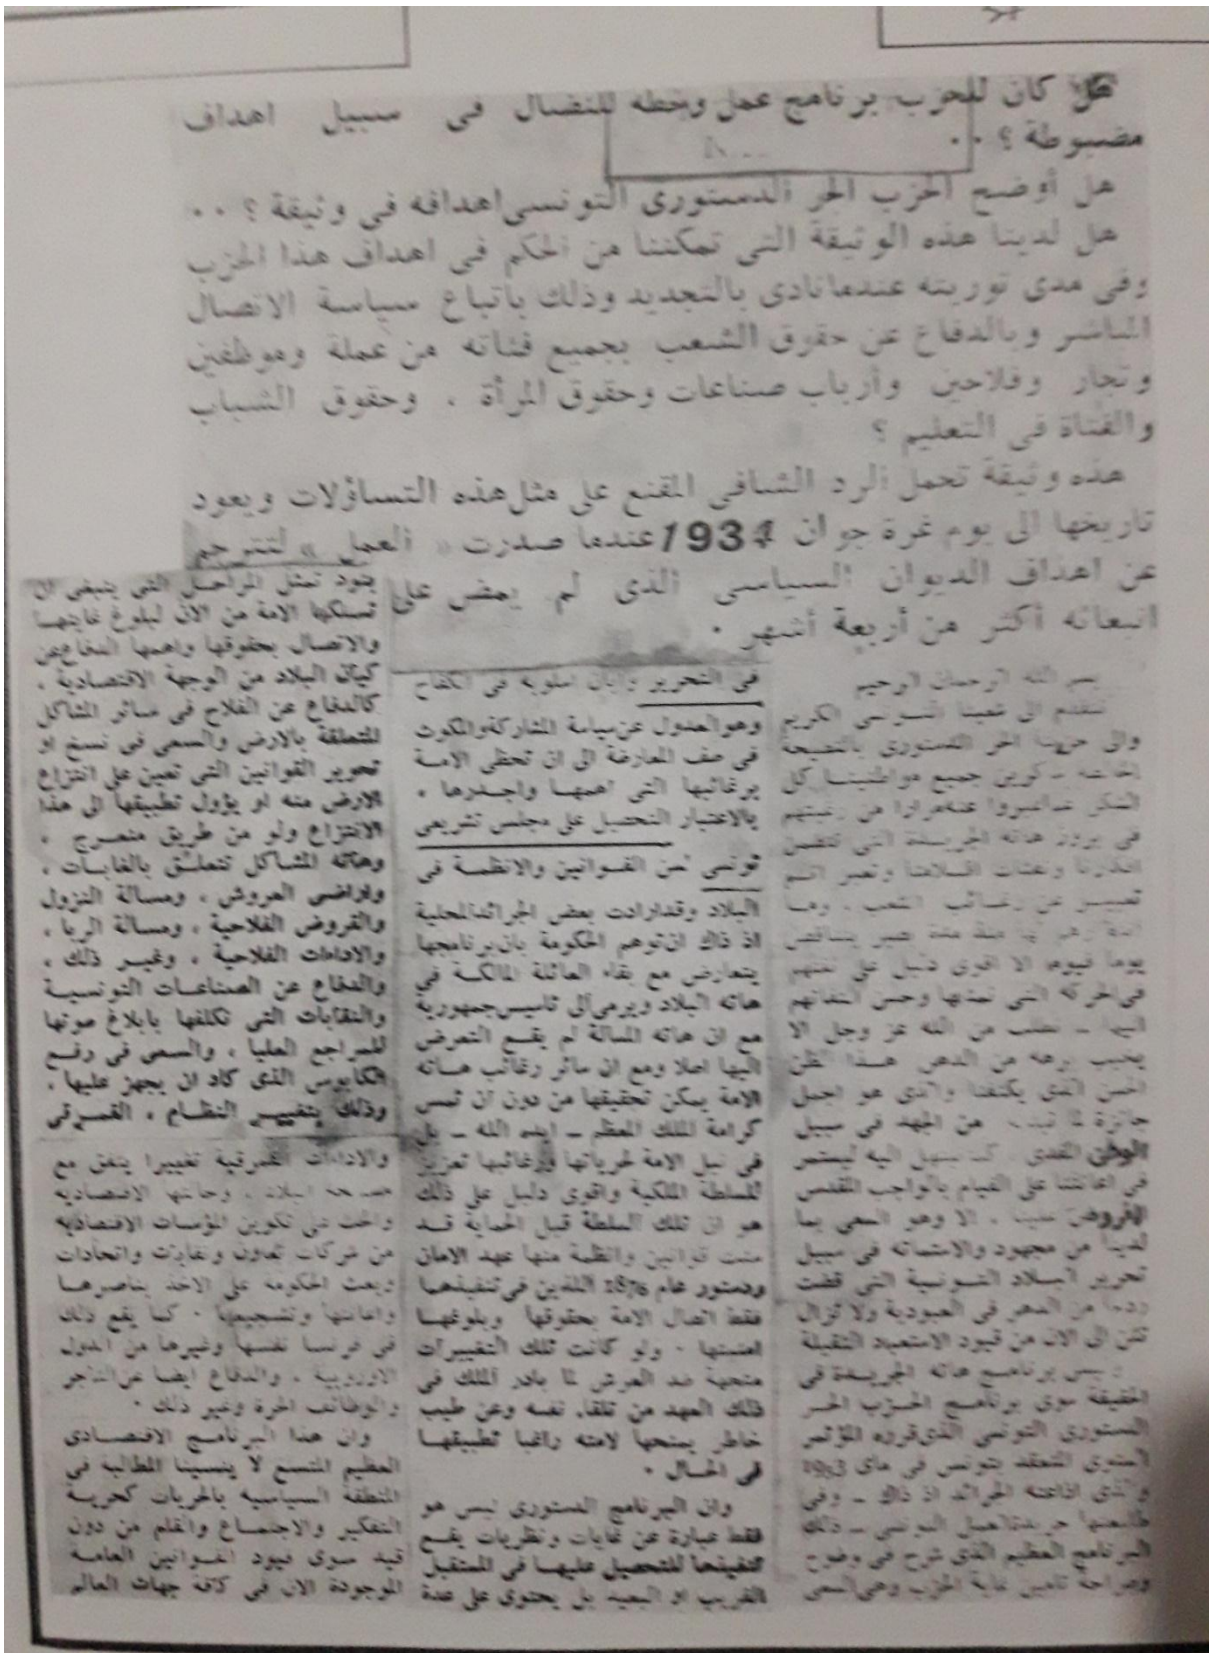 هل كان للحزب برنامج عمل وخطه للنضال في سبيل اهداف
مضبوطة ؟ ٠٠
هل أوضح الحزب الحر الدستوري التونسي اهدافه في وثيقة ؟ ٠٠
هل لدينا هذه الوثيقة التي تمكننا من الحكم في اهداف هذا الحزب
وفي مدى ثوريته عندما نادى بالتجديد وذلك باتباع سياسة الاتصال
المباشر وبالدفاع عن حقوق الشعب بجميع فئاته من عملة وموظفين
وتجار وفلاحين وأرباب صناعات وحقوق المرأة ، وحقوق الشباب
والفتاة في التعليم ؟
هذه وثيقة تحمل الرد الشافي المقنع على مثل هذه التساؤلات ويعود
تاريخها الى يوم غرة جوان 1934 عندما صدرت « العمل » لتترجم
عن اهداف الديوان السياسي الذي لم يمض على
انبعاثه أكثر من أربعة أشهر ٠
بسم الله الرحمان الرحيم
نتقدم الى شعبنا التونسي الكريم
والى حزبنا الحر الدستوري بالنتيجة
جميع مواطنينا كل
الشكر مرارا من رغبتهم
في بروز هاته الجريدة التي
وتعبر اتم
تعبير عن رغائب الشعب ، وما
يوما فيوما الا اقوى دليل على ثقتهم
في الحركة التي نمثلها وحسن التفاتهم
اليها ــ نطلب من الله عز وجل الا
يخيب برهة من الدهر هذا الظن
الحسن الذي يكتنفنا والذي هو اجمل
جائزة لما من الجهد في سبيل
الوطن المفدى ليستمر
في اعانتنا على القيام بالواجب المقدس
المفروض علينا ، الا وهو السعي بما
لدينا من مجهود والاستماتة في سبيل
تحرير البلاد التونسية التي قضت
ردحا من الدهر في العبودية ولا تزال
تئن الى الان من قيود الاستعباد الثقيلة
وليس برنامج هاته الجريدة في
الحقيقة سوى برنامج الحزب الحر
الدستوري التونسي الذي قرره المؤتمر
السنوي المنعقد بتونس في ماي 1933
والذي اذاعته الجرائد اذ ذاك ــ وفي
طالعتها جريدة العمل التونسي ــ ذلك
البرنامج العظيم الذي شرح في وضوح
وصراحة تامين غاية الحزب وهي السعي
في التحرير وابان اسلوبه في الكفاح
وهو العدول عن سياسة المشاركة والمكوث
في صف المعارضة الى ان تحظى الامة
برغائبها التي اهمها واجدرها ،
بالاعتبار التحصيل على مجلس تشريعي
تونسي لسن القوانين والانظمة في
البلاد وقد ارادت بعض الجرائد المحلية
اذ ذاك ان توهم الحكومة بان برنامجها
يتعارض مع بقاء العائلة المالكة في
هاته البلاد ويرمي الى تاسيس جمهورية
مع ان هاته المسالة لم يقع التعرض
اليها اصلا ومع ان سائر رغائب هاته
الامة يمكن تحقيقها من دون ان تمس
كرامة الملك المعظم ــ ايده الله ــ بل
في نيل الامة لحرياتها ورغائبها تعزيز
للسلطة الملكية واقوى دليل على ذلك
هو ان تلك السلطة قبل الحماية قد
سنت قوانين وانظمة منها عهد الامان
ودستور عام 1876 اللذين في تنفيذهما
فقط اتصال الامة بحقوقها وبلوغها
امنيتها ٠ ولو كانت تلك التغييرات
متجهة ضد العرش لما بادر الملك في
ذلك العهد من تلقاء نفسه وعن طيب
خاطر بمنحها لامته راغبا تطبيقها
في الحال ٠
وان البرنامج الدستوري ليس هو
فقط عبارة عن غايات ونظريات يقع
تنفيذها للتحصيل عليها في المستقبل
القريب او البعيد بل يحتوي على عدة
بنود تمثل المراحل التي ينبغي ان
تسلكها الامة من الان لبلوغ غايتها
والاتصال بحقوقها واهمها الدفاع عن
كيان البلاد من الوجهة الاقتصادية ،
كالدفاع عن الفلاح في سائر المشاكل
المتعلقة بالارض والسعي في نسخ او
تحوير القوانين التي تعين على انتزاع
الارض منه او يؤول تطبيقها الى هذا
الانتزاع ولو من طريق منعرج ،
وهاته المشاكل تتعلق بالغابات ،
واراضي العروش ، ومسالة النزول
والقروض الفلاحية ، ومسالة الربا ،
والاداءات الفلاحية ، وغير ذلك ،
والدفاع عن الصناعات التونسية
والنقابات التي تكلفها بابلاغ صوتها
للمراجع العليا ، والسعي في رفع
الكابوس الذي كاد ان يجهز عليها ،
وذلك بتغيير النظام ، القمرقي
والاداءات القمرقية تغييرا يتفق مع
مصلحة البلاد ، وحالتها الاقتصادية
والحث على تكوين المؤسسات الاقتصادية
من شركات تعاون ونقابات واتحادات
وبعث الحكومة على الاخذ بناصرها
واعانتها وتشجيعها ٠ كما يقع ذلك
في فرنسا نفسها وغيرها من الدول
الاوروبية ، والدفاع ايضا عن التاجر
والوظائف الحرة وغير ذلك ٠
وان هذا البرنامج الاقتصادي
العظيم المتسع لا ينسينا المطالبة في
المنطقة السياسية بالحريات كحرية
التفكير والاجتماع والقلم من دون
قيد سوى قيود القوانين العامة
الموجودة الان في كافة جهات العالم